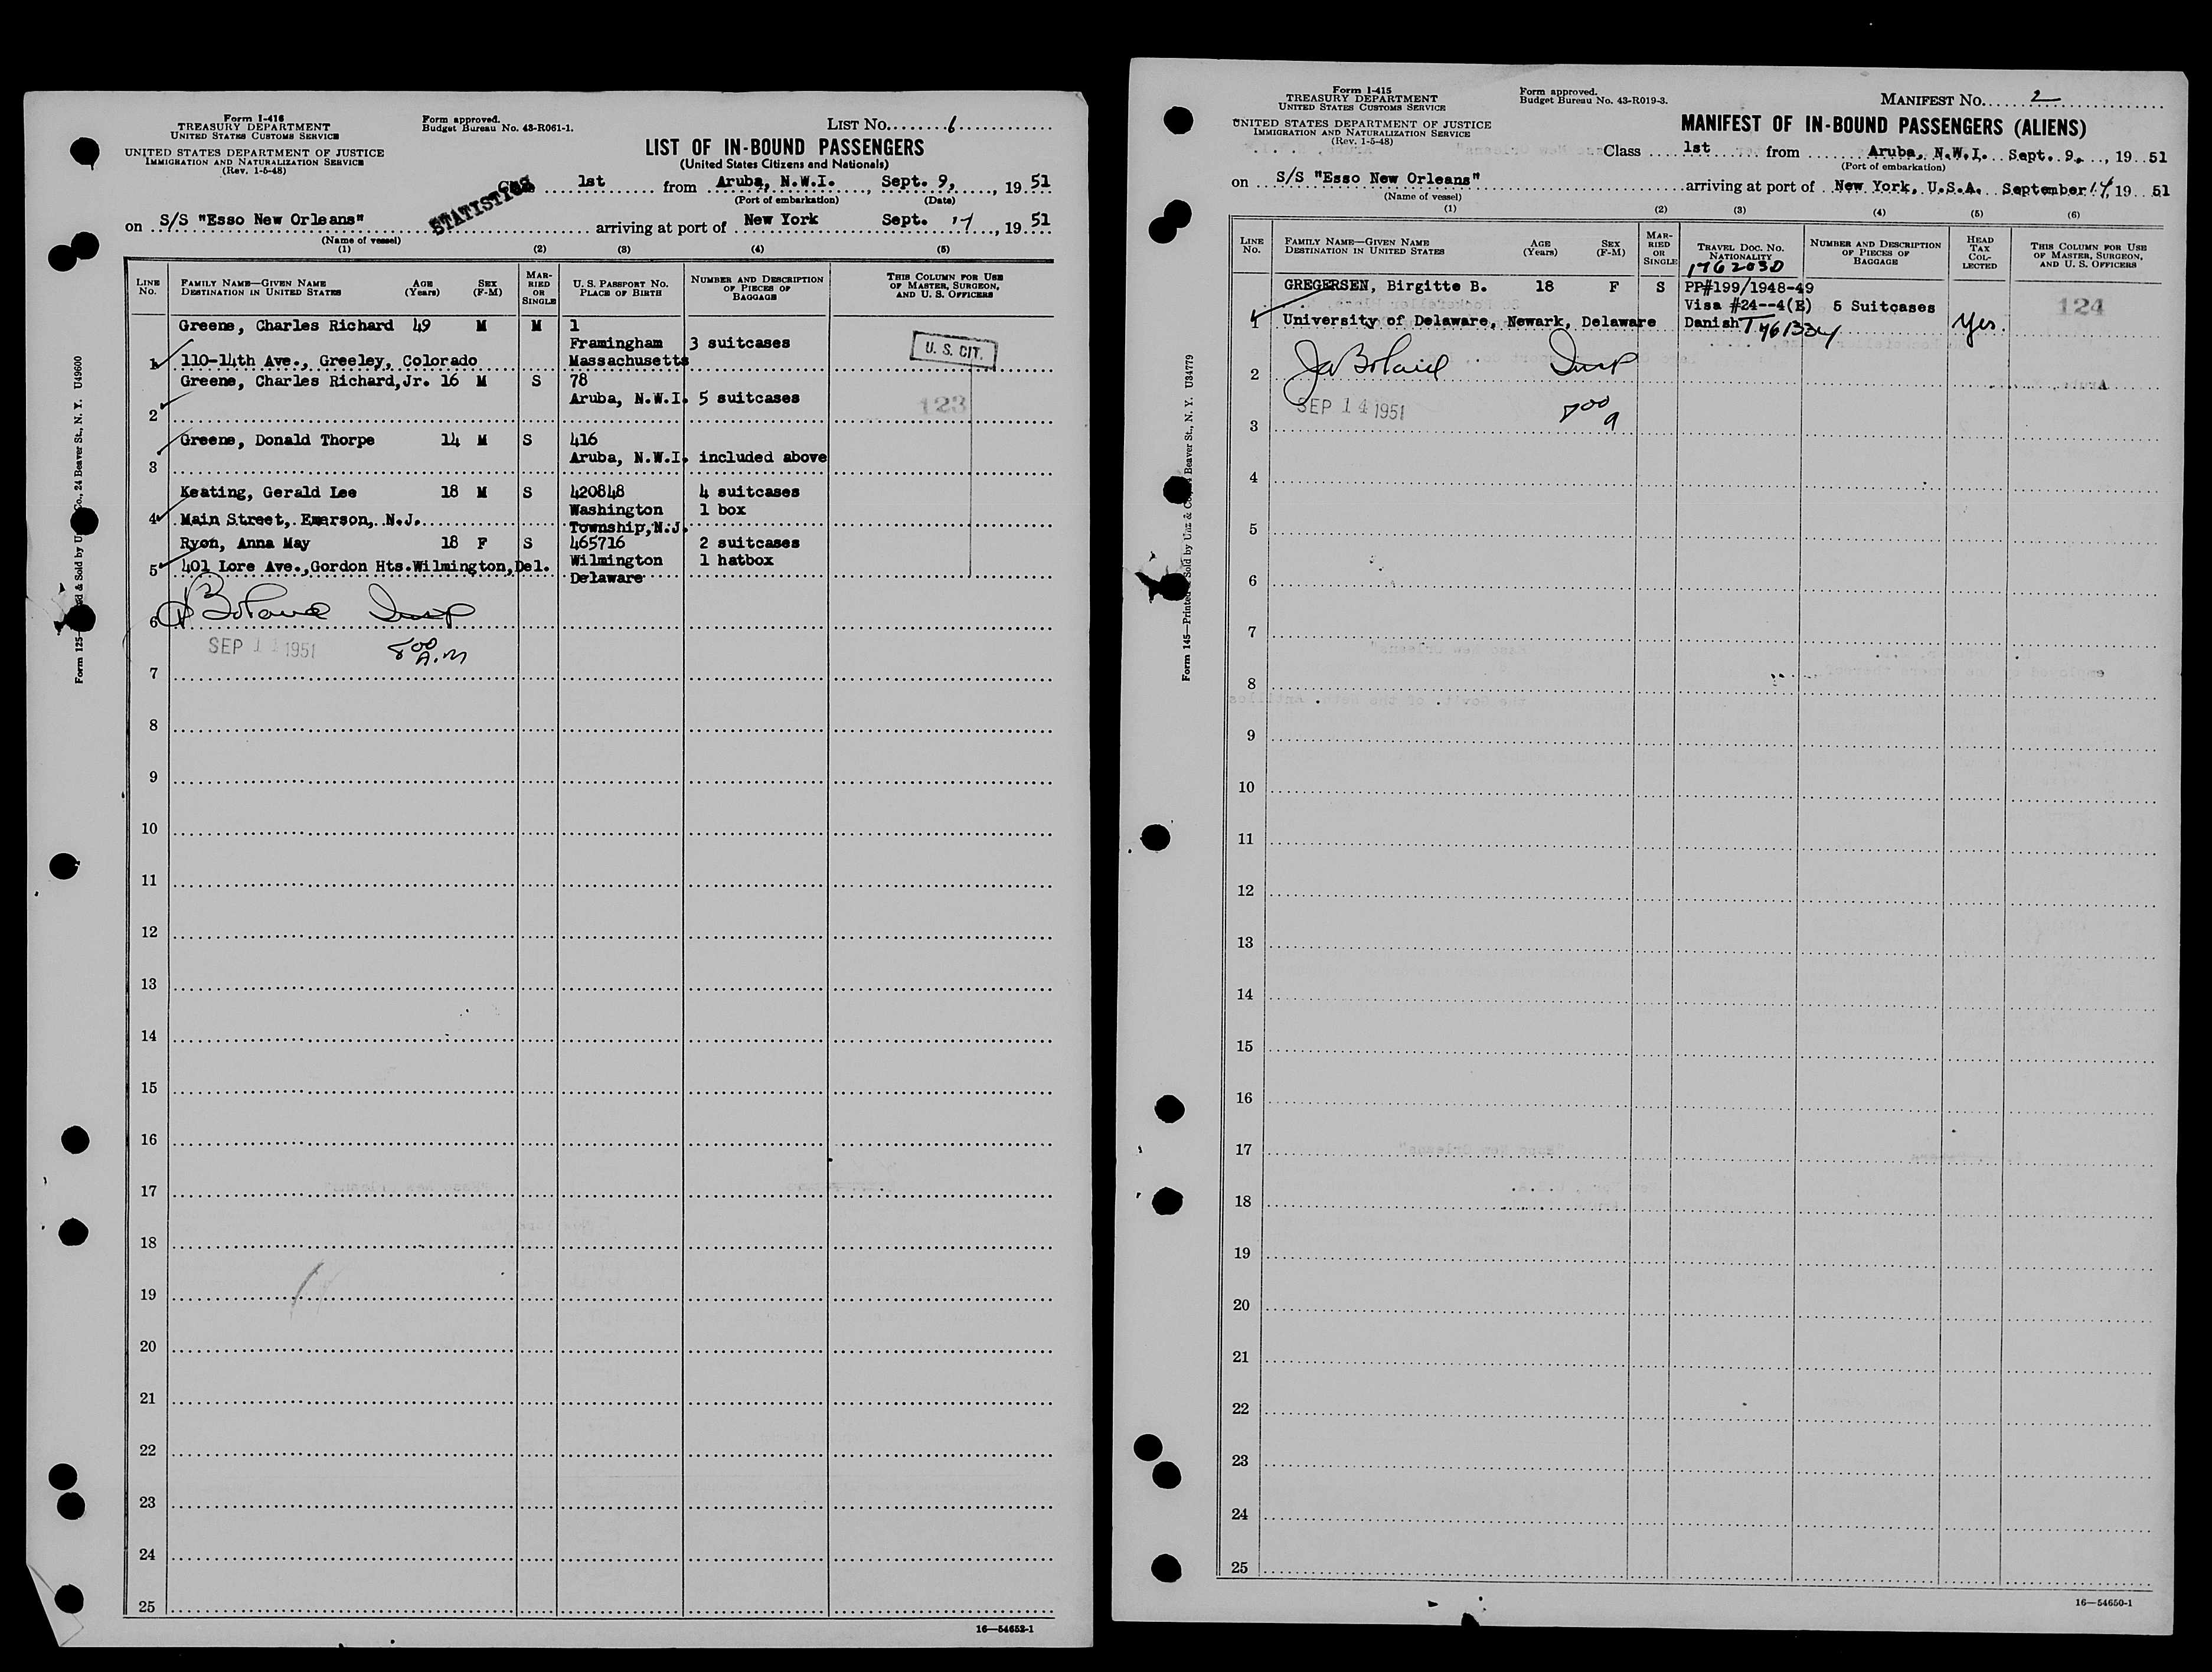 Form I-416
TREASURY DEPARTMENT
UNITED STATES CUSTOMS SERVICE
UNITED STATES DEPARTMENT OF JUSTICE
IMMIGRATION AND NATURALIZATION SERVICE
(Rev. 1-5-48)
Form approved.
Budget Bureau No. 43-R061-1.
LIST No. 6
LIST OF IN-BOUND PASSENGERS
(United States Citizens and Nationals)
STATISTICS
1st from Aruba, N.W.I., Sept. 9, 19 51
(Port of embarkation) (Date)
on S/S "Esso New Orleans" arriving at port of New York Sept. 19 51
(Name of vessel)
(1) (2) (3) (4) (5)
LINE No. FAMILY NAME—GIVEN NAME DESTINATION IN UNITED STATES AGE (Years) SEX (F-M) MARRIED OR SINGLE U. S. PASSPORT NO. PLACE OF BIRTH NUMBER AND DESCRIPTION OF PIECES OF BAGGAGE THIS COLUMN FOR USE OF MASTER, SURGEON, AND U. S. OFFICERS
Greene, Charles Richard 49 M M 1
Framingham 3 suitcases U. S. CIT.
1 110-14th Ave., Greeley, Colorado Massachusetts
Greene, Charles Richard,Jr. 16 M S 78
Aruba, N.W.I. 5 suitcases 123
2
Greene, Donald Thorpe 14 M S 416
Aruba, N.W.I. included above
3
Keating, Gerald Lee 18 M S 420848 4 suitcases
Washington 1 box
4 Main Street, Emerson, N.J. Township,N.J.
Ryon, Anna May 18 F S 465716 2 suitcases
5 401 Lore Ave.,Gordon Hts.Wilmington,Del. Wilmington 1 hatbox
Delaware
6 Boland Insp
SEP 1 1951 8 00 A.M
7
8
9
10
11
12
13
14
15
16
17
18
19
20
21
22
23
24
25
16—54652-1
Form 125
Co., 24 Beaver St., N. Y. U49600
Form I-415
TREASURY DEPARTMENT
UNITED STATES CUSTOMS SERVICE
UNITED STATES DEPARTMENT OF JUSTICE
IMMIGRATION AND NATURALIZATION SERVICE
(Rev. 1-5-48)
Form approved.
Budget Bureau No. 43-R019-3.
MANIFEST No. 2
MANIFEST OF IN-BOUND PASSENGERS (ALIENS)
Class 1st from Aruba, N.W.I. Sept. 9, 19 51
(Port of embarkation)
on S/S "Esso New Orleans" arriving at port of New York, U.S.A. September 14, 19 51
(Name of vessel)
(1) (2) (3) (4) (5) (6)
LINE No. FAMILY NAME—GIVEN NAME DESTINATION IN UNITED STATES AGE (Years) SEX (F-M) MARRIED OR SINGLE TRAVEL DOC. NO. NATIONALITY NUMBER AND DESCRIPTION OF PIECES OF BAGGAGE HEAD TAX COLLECTED THIS COLUMN FOR USE OF MASTER, SURGEON, AND U. S. OFFICERS
GREGERSEN, Birgitte B. 18 F S PP#199/1948-49
Visa #24--4(E) 5 Suitcases 124
1 University of Delaware, Newark, Delaware Danish Yes.
2 Boland Insp
SEP 14 1951
3
4
5
6
7
8
9
10
11
12
13
14
15
16
17
18
19
20
21
22
23
24
25
16—54650-1
Form 145—Printed & Sold by Unz & Co., Beaver St., N. Y. U34779